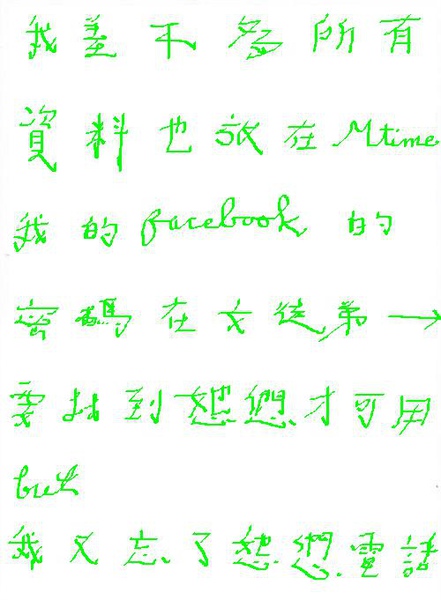 我差不多所有
資料也放在Mtime
我的facebook的
密碼在女徒弟→
要找到她們才可用
but
我又忘了她們電話